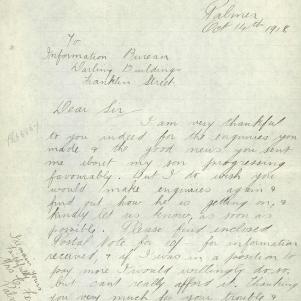 Palmer
Oct 14th 1918
To
Information Bureau
Darling Buildings
Franklin Street.
Dear Sir
I am very thankful
to you indeed for the enquiries you
made & the good news you sent
me about my son progressing
favourably. But I do wish you
would make enquiries again &
find out how he is getting on, &
kindly let us know, as soon as
possible. Please find enclosed
Postal Note for for information
received, & if I was in a position to
pay more I would willingly do so,
but can't really afford it. thanking
you very much for your trouble &